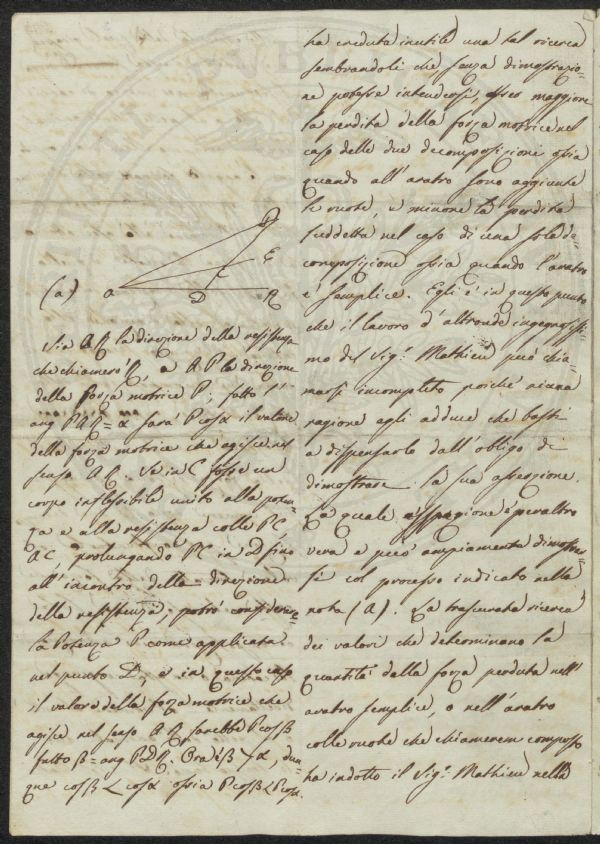 (a) A P E C D R
Sia AR la direzione della resistenza
che chiamerò R, e AP la direzione
della forza motrice P; fatto l'
ang PAR = α sarà P cos α il valore
della forza motrice che agisce nel
senso AR. Se in C fosse un
corpo inflessibile unito alla poten-
za e alla resistenza colle PC,
AC, prolungando PC in D fino
all'incontro della direzione
della resistenza, potrò considerare
la Potenza P come applicata
nel punto D, e in questo caso
il valore della forza motrice che
agisce nel senso AR sarebbe P cos β
fatto β = ang PDR. Ora è β > α, dun-
que cos β < cos α ossia P cos β < P cos α.
ha creduta inutile una tal ricerca
sembrandoli che senza dimostrazio=
ne potesse intendersi, esser maggiore
la perdita della forza motrice nel
caso delle due decomposizioni ossia
quando all'aratro sono aggiunte
le ruote, e minore la perdita
suddetta nel caso di una sola de=
composizione ossia quando l'aratro
è semplice. Egli è in questo punto
che il lavoro d'altronde ingegnosissi=
mo del Sig.r Mathieu può chia
marsi incompleto poiché niuna
ragione egli adduce che basti
a dispensarlo dall'obligo di
dimostrare la sua asserzione.
La quale asserzione è peraltro
vera e può ampiamente dimostrar
si col processo indicato nella
nota (A). La trascurata ricerca
dei valori che determinano la
quantità della forza perduta nell'
aratro semplice, o nell'aratro
colle ruote che chiamerem composto
ha indotto il Sig.r Mathieu nella